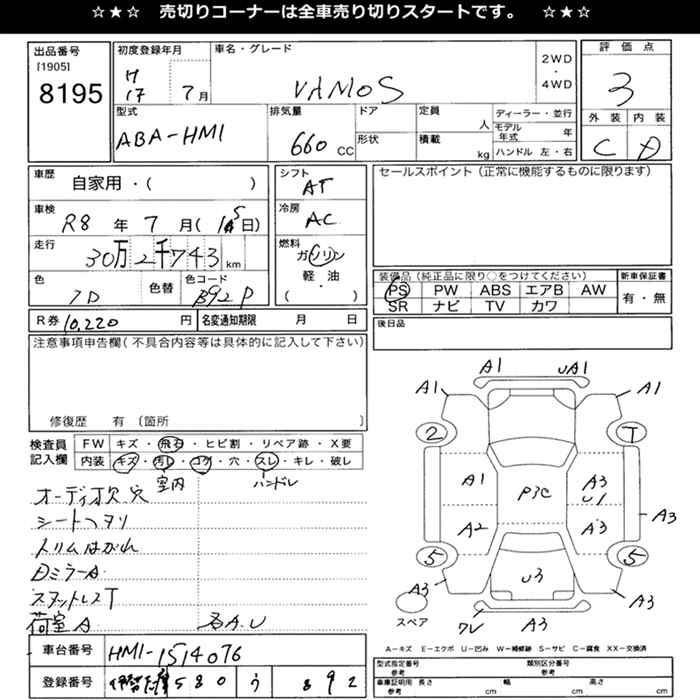 ☆★☆ 売切りコーナーは全車売り切りスタートです。 ☆★☆
出品番号
[1905]
8195
初度登録年月
H
17 7月
車名・グレード
VAMOS
2WD
・
4WD
評価点
3
外装 内装
C D
型式
ABA-HM1
排気量
660 CC
ドア
形状
定員
人
積載
kg
ディーラー・並行
モデル年式 年
ハンドル 左・右
車歴
自家用・( )
車検
R8 年 7 月( 日)
走行
30万2千743 km
色
色替
色コード
B92P
シフト
AT
冷房
AC
燃料
ガソリン
軽・油
( )
セールスポイント(正常に機能するものに限ります)
装備品(純正品に限り○をつけてください)
PS PW ABS エアB AW
SR ナビ TV カワ
新車保証書
有・無
R券 10,220 円
名変通知期限 月 日
後日品
注意事項申告欄(不具合内容等は具体的に記入して下さい)
修復歴 有 〔箇所 〕
検査員
記入欄
FW キズ・飛石・ヒビ割・リペア跡・X要
内装 キズ・汚レ・コゲ・穴・スレ・キレ・破レ
室内 ハンドル
オーディオ欠 穴
シートヘタリ
トリムはがれ
DミラーA
荷室A
A.U
A1 UA1
A1 A1
2 T
A1 P3C A3
U1
A2 A3 A3
5 U3 5
A3 A3
スペア
ワレ A3
A=キズ E=エクボ U=凹み W=補修跡 S=サビ C=腐食 XX=交換済
車台番号
HM1-1514076
登録番号
580 う 892
型式指定番号
参考
類別区分番号
参考
車庫証明用
参考
長さ cm
幅 cm
高さ cm